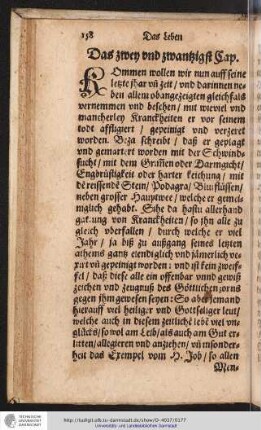 158 Das Leben
Das zwey vnd zwantzigst Cap.
KOmmen wollen wir nun auff seine
letzte shar vñ zeit / vnd darinnen ne-
ben allem obangezeigten gleichfals
vernemmen vnd besehen / mit wieviel vnd
mancherley Kranckheiten er vor seinem
todt affligiert / gepeinigt vnd verzeret
worden. Beza schreibt / daß er geplagt
vnd gemartert worden mit der Schwind-
sucht / mit dem Grim̃en oder Darmgicht /
Engbrüstigkeit oder harter keichung / mit
dẽ reissendẽ Stein / Podagra / Blutflüssen /
neben grosser Hauptwee / welche er gemei-
niglich gehabt. Sihe da hastu allerhand
gattung von Kranckheiten / so jhn alle zu
gleich vberfallen / durch welche er viel
Jahr / ja biß zu außgang seines letzten
athems gantz eiendiglich vnd jämerlich ve-
xirt vñ gepeinigt worden: vnd ist kein zweif-
fel / daß diese alle ein offenbar vnnd gewiß
zeichen vnd zeugnuß des Göttlichen zorns
gegen jhm gewesen seyen: So aber jemand
hierauff viel heiliger vnd Gottseliger leut /
welche auch in diesem zeitlichẽ lebẽ viel vn-
glücks / so wol am Leib / als auch am Gut er-
litten / allegieren vnd anziehen / vñ insonder-
heit das Exempel vom H. Job / so allen
Men-
http://tudigit.ulb.tu-darmstadt.de/show/O-4037/0177
Universitäts- und Landesbibliothek Darmstadt